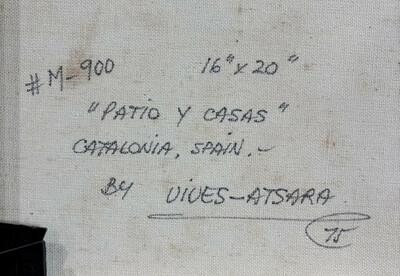 #M-900 16"x20"
"PATIO Y CASAS"
CATALONIA, SPAIN.-
BY VIVES-ATSARA
75